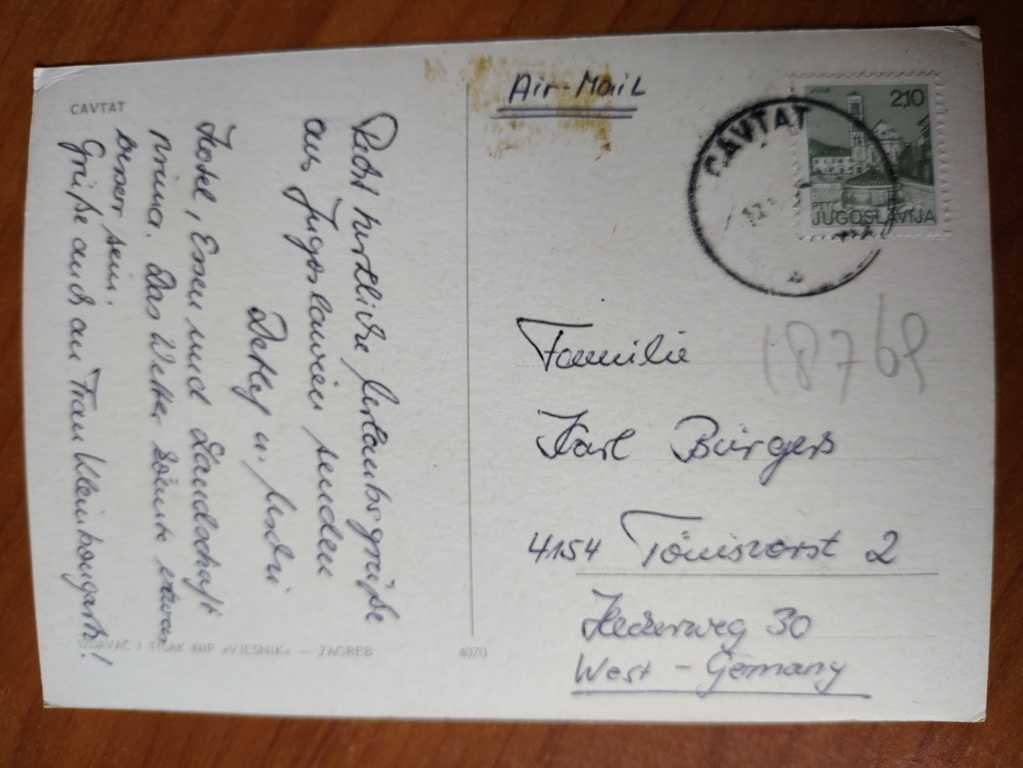 CAVTAT
Recht herzliche Urlaubsgrüße
aus Jugoslawien senden
Detlef u.
Hotel, Essen und Landschaft
prima. Das Wetter könnte etwas
besser sein.
Grüße auch an Frau
IZDAVAČ I TISAK NIP »VJESNIK« — ZAGREB
4070
Air-Mail
CAVTAT
2,10
JUGOSLAVIJA
18769
Familie
Karl Bürgers
4154 Tönisvorst 2
30
West-Germany